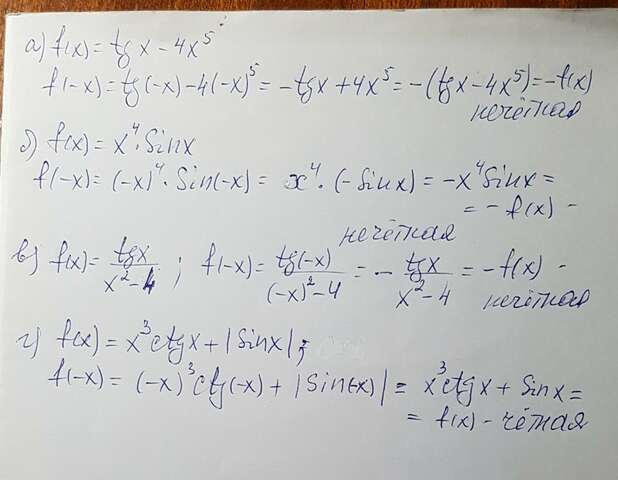 а) f(x) = tg x - 4x⁵
f(-x) = tg(-x) - 4(-x)⁵ = -tgx + 4x⁵ = -(tgx - 4x⁵) = -f(x)
нечётная
б) f(x) = x⁴·Sinx
f(-x) = (-x)⁴·Sin(-x) = x⁴·(-Sinx) = -x⁴Sinx =
= -f(x) -
нечётная
в) f(x) = tgx/(x²-4); f(-x) = tg(-x)/((-x)²-4) = - tgx/(x²-4) = -f(x) -
нечётная
г) f(x) = x³ctgx + |Sinx|;
f(-x) = (-x)³ctg(-x) + |Sin(-x)| = x³ctgx + Sinx =
= f(x) - чётная